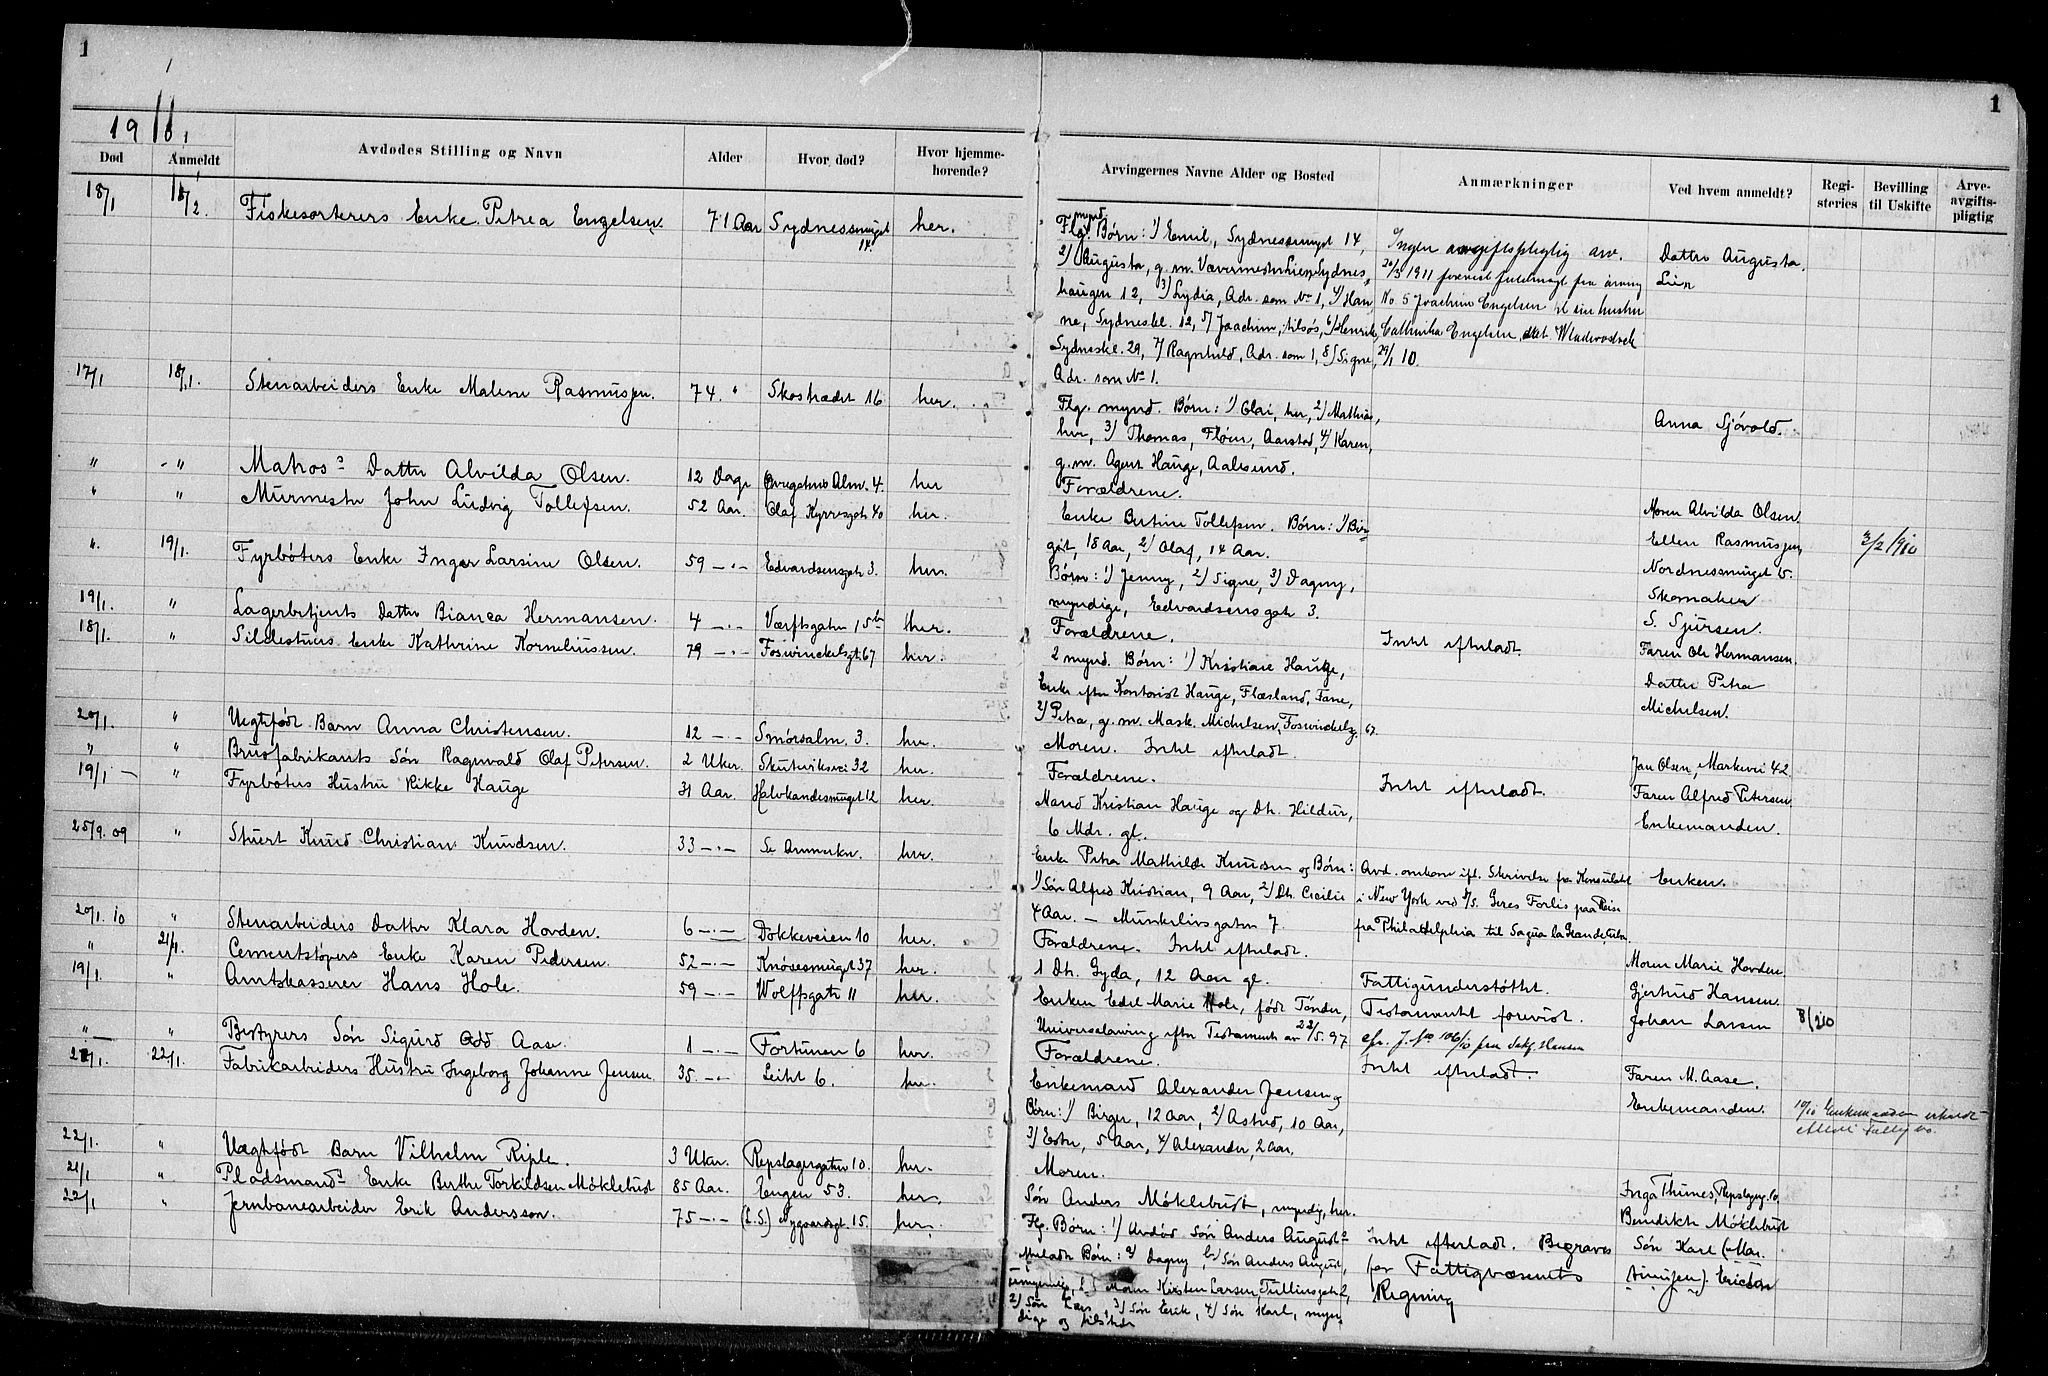 1
1
19 10
Død
Anmeldt
Avdødes Stilling og Navn
Alder
Hvor død?
Hvor hjemme-
hørende?
Arvingernes Navne Alder og Bosted
Anmærkninger
Ved hvem anmeldt?
Regi-
steries
Bevilling
til Uskifte
Arve-
avgifts-
pligtig
18/1 Fiskesorterers Enke Petrea Engelsen. 71 Aar Sydnessmuget 14. her.
Flg. mynd. Børn: 1) Emil, Sydnessmuget 14,
2) Augusta, g. m. Vævermester Lien, Sydnes-
haugen 12, 3) Lydia, Adr. som No 1, 4) Han-
ne, Sydneskl. 12, 5) Joachim, tilsøs, 6) Henrik,
Sydneskl. 29, 7) Ragnhild, Adr. som 1, 8) Signe,
Adr. som No 1.
Ingen avgiftspligtig arv.
26/3 1911 forevist fuldmagt fra arving
No. 5 Joachim Engelsen til sin hustru
Cathinka Engelsen, dat. Wladivostok
29/1 10.
Datter Augusta
Lien
17/1 18/1. Stenarbeiders Enke Malene Rasmussen. 74 " Skostrædet 16 her.
Flg. mynd. Børn: 1) Olai, her, 2) Mathias,
her, 3) Thomas, Fløen, Aarstad, 4) Karen,
g. m. Agent Hauge, Aalesund.
Anna Sjóvold.
" " Matros's Datter Alvilda Olsen. 12 Dage Alm. 4. her
Forældrene.
Moren Alvilda Olsen.
" " Murmester John Ludvig Tollefsen. 52 Aar. Olaf Kyrresgate 40 her.
Enke Bertine Tollefsen. Børn: 1) Bir-
git, 18 Aar, 2) Olaf, 14 Aar.
Ellen Rasmussen
Nordnessmuget 15.
3/2 1910
" 19/1. Fyrbøters Enke Inger Larsine Olsen. 59 -"- Edvardsensgate 3. her.
Børn: 1) Jenny, 2) Signe, 3) Dagny,
myndige, Edvardsensgate 3.
Skomaker
S. Sjursen.
19/1. " Lagerbetjents Datter Bianca Hermansen. 4 -"- Værftsgaten 15b her.
Forældrene.
Intet efterladt.
Faren Ole Hermansen.
18/1. " Sildestuers Enke Kathrine Korneliussen. 79 -"- Foswinckelsgt. 67 her.
2 mynd. Børn: 1) Kristiane Hauge,
Enke efter Kontorist Hauge, Flæsland, Fane,
2) Petra, g. m. Mask. Michelsen, Foswinckelsg. 67.
Datter Petra
Michelsen.
20/1. " Uegtefødt Barn Anna Christensen. 12 -"- Smørsalm. 3. her.
Moren. Intet efterladt.
Jan Olsen, Markevei 42
" " Brusfabrikants Søn Ragnvald Olaf Petersen. 2 Uker. Skuteviksvei 32 her.
Forældrene.
Intet efterladt.
Faren Alfred Petersen
19/1 " Fyrbøters Hustru Rikke Hauge 31 Aar. Halvkandesmuget 12 her.
Mand Kristian Hauge og Dtr. Hildur,
6 Mdr. gl.
Enkemanden.
25/9. 09 " Stuert Knud Christian Knudsen. 33 -"- Se Anmerkn. her.
Enke Petra Mathilde Knudsen og Børn:
1) Søn Alfred Kristian, 9 Aar, 2) Dtr. Cecilie
4 Aar. - Munkelivsgaten 7.
Avd. omkom ifl. Skrivelse fra Konsulatet
i New York ved D/S. Geres Forlis paa Reise
fra Philadelphia til Sagua la Grande, Cuba.
Enken.
20/1. 10 " Stenarbeiders Datter Klara Hovden. 6 -"- Dokkeveien 10 her.
Forældrene. Intet efterladt.
Moren Marie Hovden
" 21/1. Cementstøpers Enke Karen Pedersen. 52 -"- Knøsesmuget 37 her.
1 Dtr. Gyda, 12 Aar gl.
Fattigunderstøttet.
Gjertrud Hansen
19/1. " Amtskasserer Hans Hole. 59 -"- Wolffsgate 11 her.
Enken Edel Marie Hole, født Tønder,
Universalarving efter Testamente av 22/5. 97
Testamentet forevist.
Johan Larsen
" " Bestyrers Søn Sigurd Odd Aase. 1 -"- Fortunen 6 her.
Forældrene.
Intet efterladt.
Faren M. Aase.
21/1. 22/1. Fabrikarbeiders Hustru Ingeborg Johanne Jensen. 35. -"- Leitet 6. her.
Enkemand Alexander Jensen og
Børn: 1) Birger, 12 Aar, 2) Astrid, 10 Aar,
3) Ester, 5 Aar, 4) Alexander, 2 Aar.
Enkemanden.
22/1. " Uegtefødt Barn Vilhelm Riple. 3 Uker. Repslagergaten 10. her.
Moren.
Inga Thunes, Repslagerg. 10
21/1 " Pladsmands Enke Berthe Torkildsen Møklebust 85 Aar. Engen 53. her.
Søn Anders Møklebust, myndig, her.
Benedikte Møklebust
22/1 " Jernbanearbeider Erik Andersson. 75 -"- (L.S.) Nygaardsgt. 15. her.
Flg. Børn: 1) Avdød Søn Anders Augusts
efterladte Børn: a) Dagny, b) Søn Anders August,
umyndig, Moren Kirsten Larsen, Tulliusgate 2,
2) Søn Lars, 3) Søn Erik, 4) Søn Karl, myn-
dige og tilstede
Intet efterladt. Begraves
for Fattigvæsenets
Regning
Søn Karl